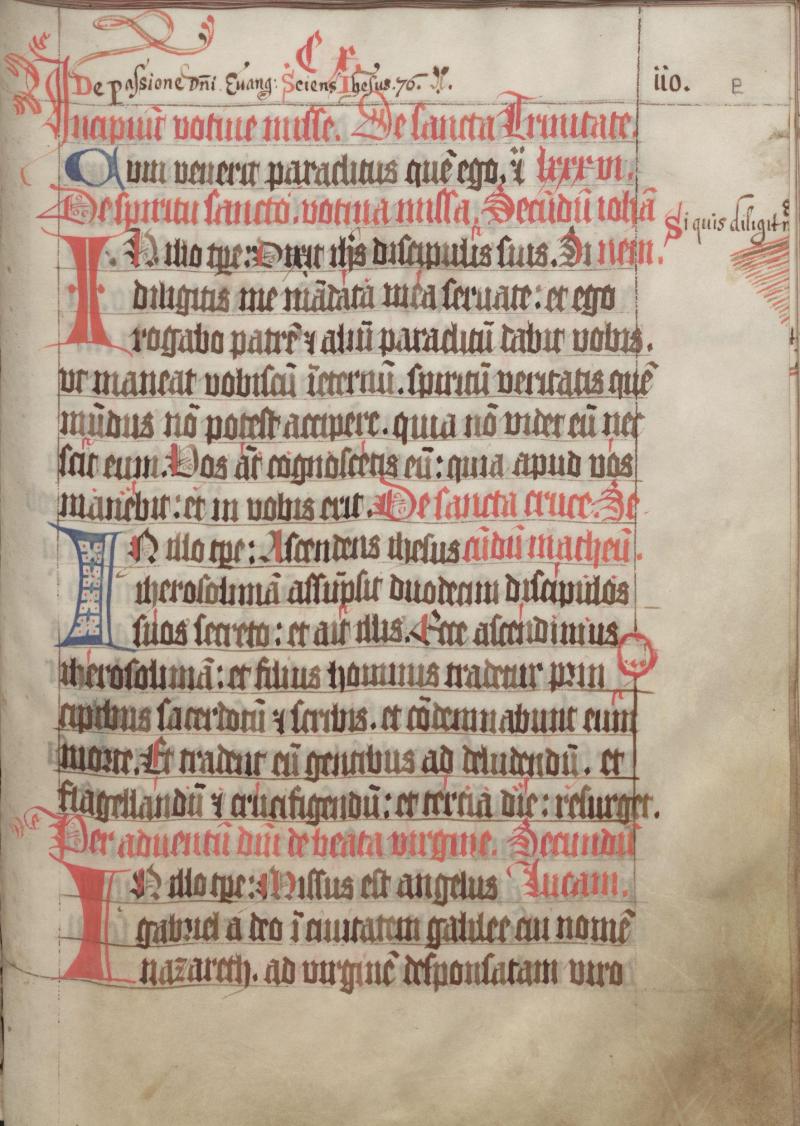 C x.
De passione dñi Euang: Sciens Ihesus. 76.
iio.
Incipiũt votiue misse. De sancta Trinitate.
Cum venerit paraclitus quē ego, ĩ lxxxvi.
De spiritu sancto. votiua missa. Secundũ iohã
Si quis diligit
IN illo tp̄e: Dixit ihs̄ discipulis suis. Si nem.
diligitis me mãdata mea seruate: et ego
rogabo patrē ⁊ aliũ paraclitũ dabit vobis.
vt maneat vobiscũ ĩeternũ. spiritũ veritatis quē
mũdus nõ potest accipere. quia nõ videt eũ nec
scit eum. Vos aũt cognoscetis eũ: quia apud vos
manebit: et in vobis erit. De sancta cruce. Se-
IN illo tp̄e: Ascendens ihesus cũdũ matheũ.
iherosolimã assũpsit duodecim discipulos
suos secreto: et ait illis. Ecce ascendimus
iherosolimã: et filius hominis tradetur prin
cipibus sacerdotũ ⁊ scribis. et cõdemnabunt eum
morte. Et tradent eũ gentibus ad deludendũ. et
flagellandũ ⁊ crucifigendũ: et tercia die: resurget.
Per aduentũ dñi de beata virgine. Secundũ
IN illo tp̄e: Missus est angelus Lucam.
gabriel a deo ĩ ciuitatem galilee cui nomē
nazareth. ad virginē desponsatam viro